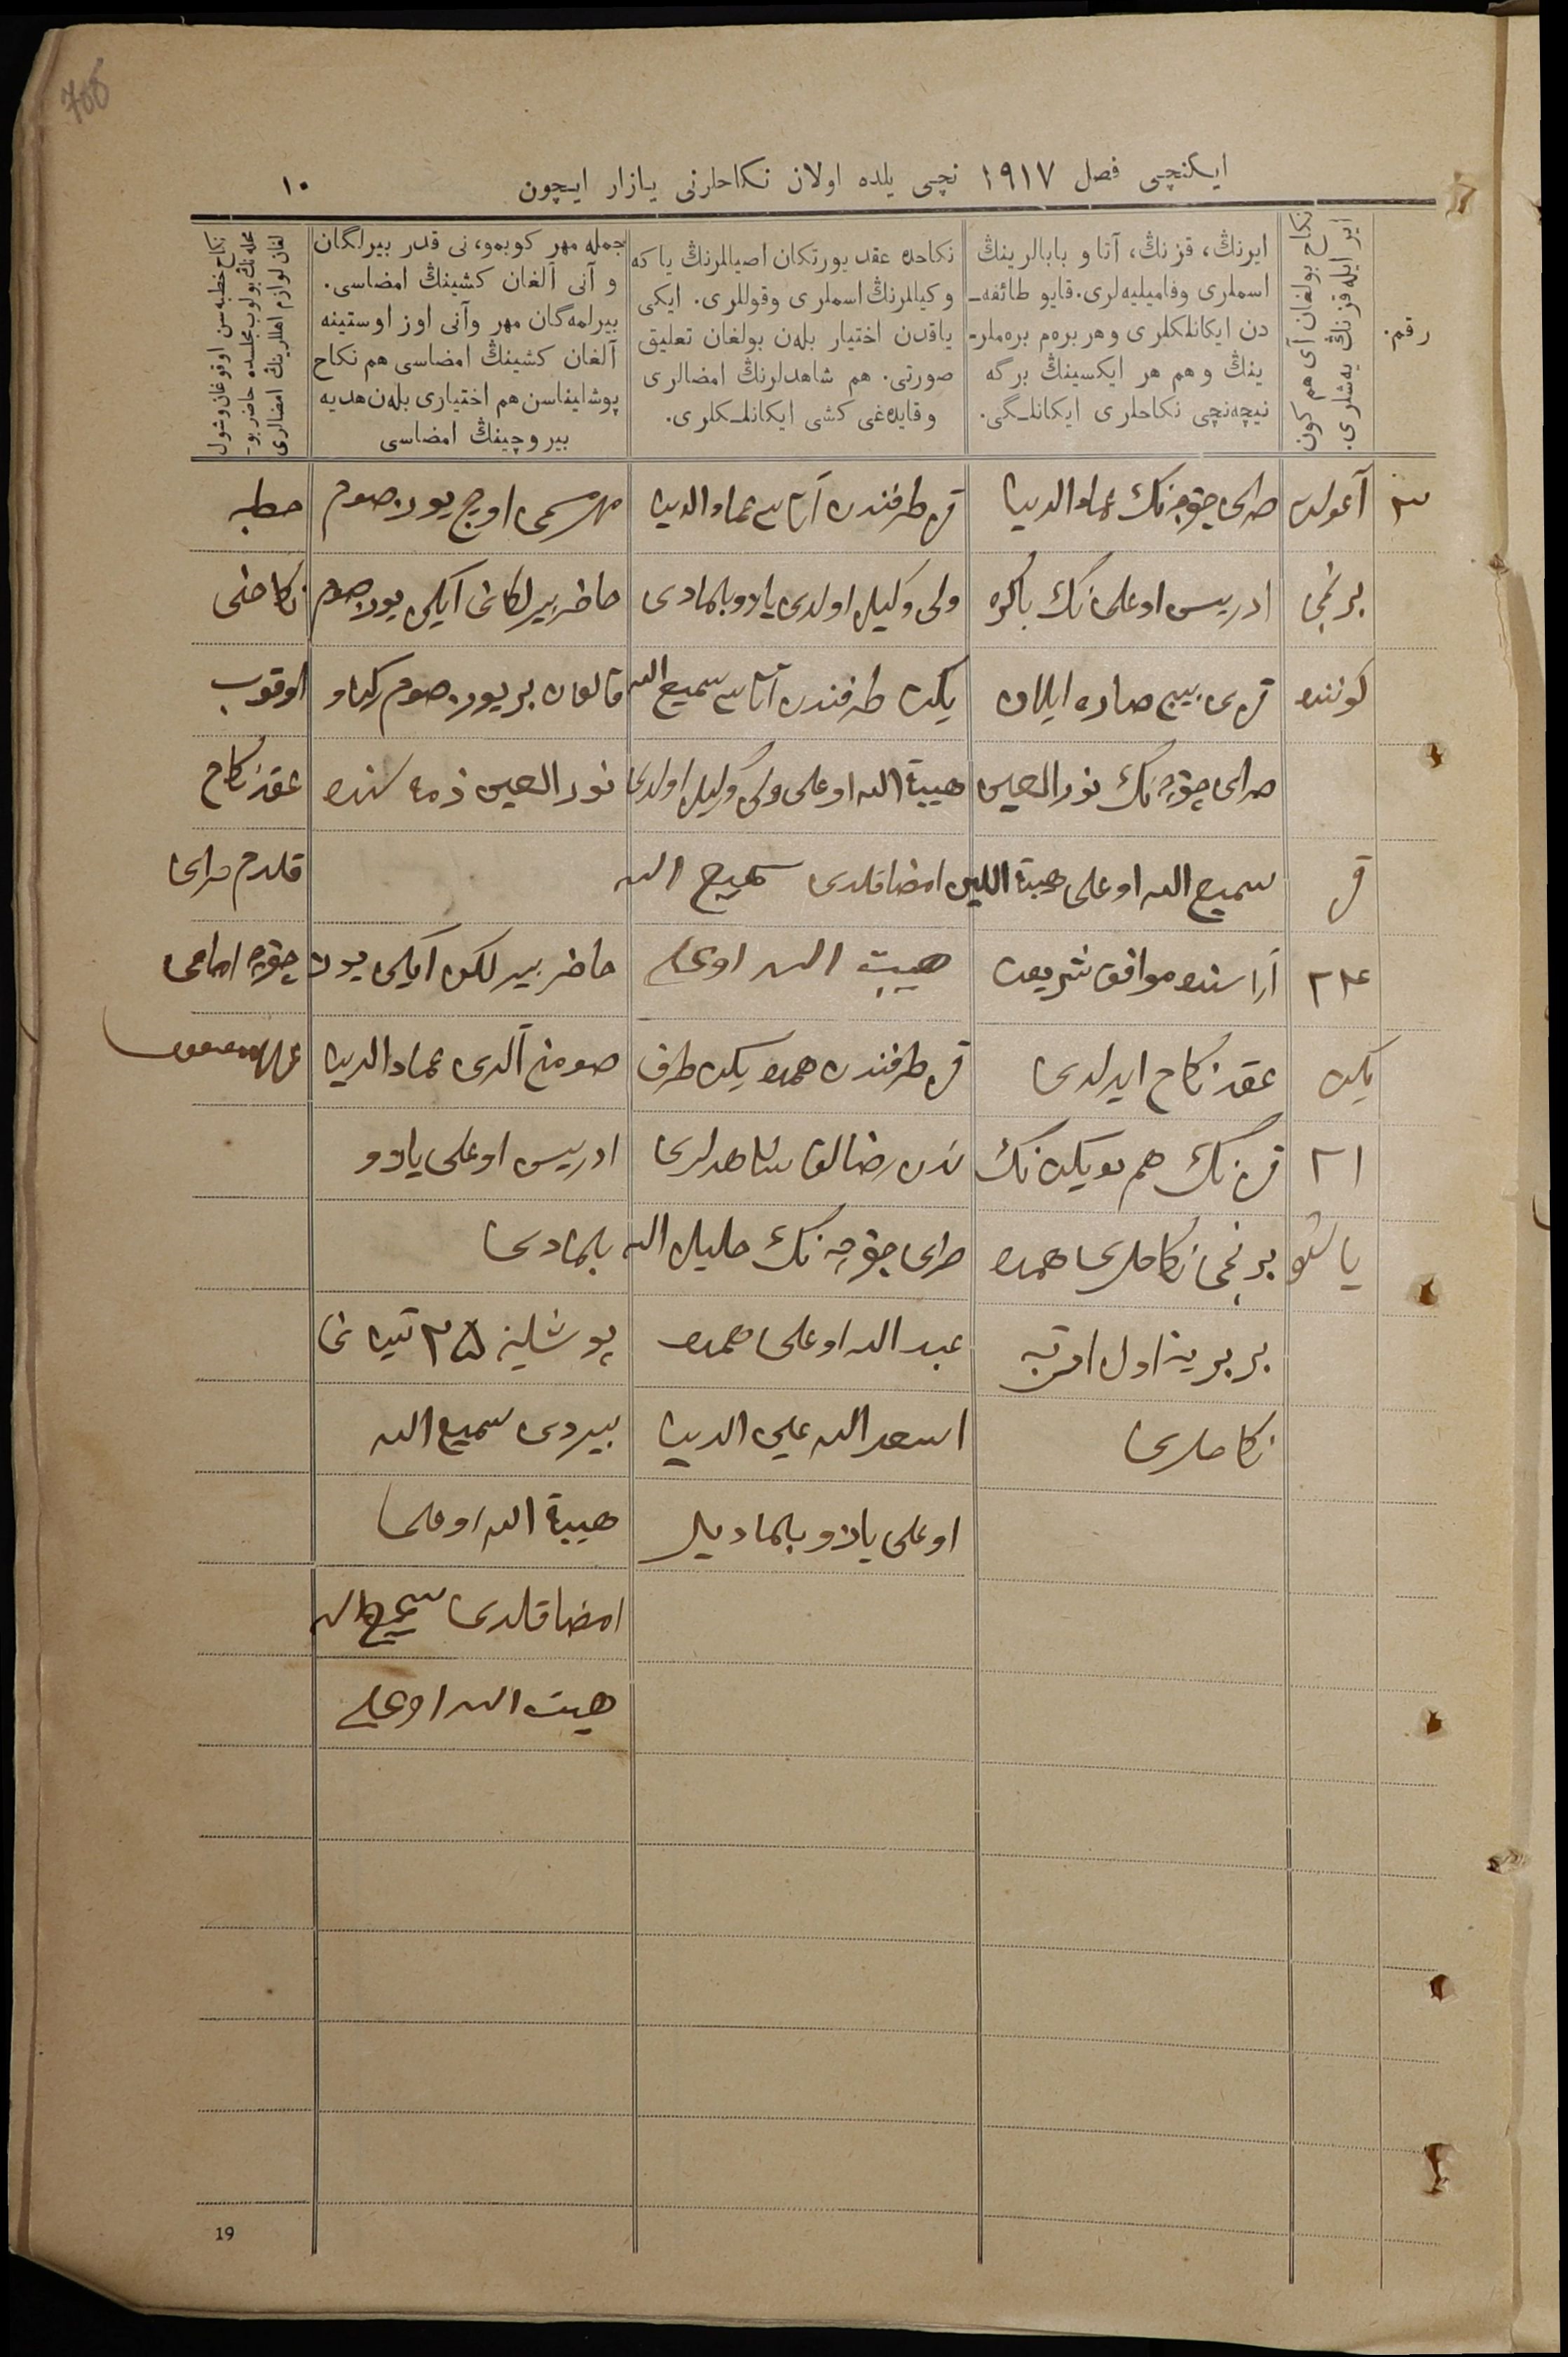 ایکنچی فصل ١٩١٧ نچی یلده اولان نکاحلرنی یازار ایچون
١٠
رقم:
نکاح بولغان آی هم کون
ایر ایله قزنڭ یه‌شلری.
ایرنڭ، قزنڭ، آتا و بابالرینڭ
اسملری وفامیلیه‌لری. قایو طائفه‌ـ
دن ایکانلکلری و هر بره‌م بره‌ملرـ
ینڭ و هم هر ایکسینڭ برگه
نیچه‌نچی نکاحلری ایکانلـگی.
نکاحده عقد یورتکان اصیللرنڭ یا که
وکیللرنڭ اسملری وقوللری. ایکی
یاقدن اختیار بله‌ن بولغان تعلیق
صورتی. هم شاهدلرنڭ امضالری
و قایده‌غی کشی ایکانلـکلری.
جمله مهر کوبمو، نی قدر بیرلگان
و آنی آلغان کشینڭ امضاسی.
بیرلمه‌گان مهر وآنی اوز اوستینه
آلغان کشینڭ امضاسی هم نکاح
پوشلیناسن هم اختیاری بله‌ن هدیه
بیروچینڭ امضاسی
نکاح خطبه‌سن اوقوغان وشول
محله‌نڭ بولوب مجلسده حاضر بوـ
لغان لوازم اهللرینڭ امضالری
٣
برنچی
کوننده
قز
٢٣
یکت
٢١
یاشلو
صرای چقورنڭ عمادالدین
ادریس اوغلی نڭ باکره
قزی بیبی صاره ایلان
صرای چقورنڭ نورالعین
سمیع الله اوغلی هبة اللهین امضا قلدی سمیع الله
آراسنده موافق شریعت
عقد نکاح ایدلدی
قزنڭ هم بو یکت نڭ
برنچی نکاحلری همده
بر برینه اول مرتبه
نکاحلری
قز طرفندن آتاسی عمادالدین
ولی وکیل اولدی یازو بلمادی
یکت طرفندن آتاسی سمیع الله
هیبة الله اوغلی ولی وکیل اولدی
هیبت الله اوغلی
قز طرفندن همده یکت طرف
ندن رضالق شاهدلری
صرای چقورنڭ خلیل الله
عبدالله اوغلی همده
اسعدالله علی الدین
اوغلی یازو بلمادیلر
مهر مسمی اوچ یوز صوم
حاضر بیرلکانی ایکی یوز صوم
قالغان بر یوز صوم کیاو
نورالعین ذمه سنده
حاضر بیرلکن ایکی یوز
صومنی آلدی عمادالدین
ادریس اوغلی یازو
بلمادی
پوشلینه ٢٥ تین نی
بیردی سمیع الله
هیبة الله اوغلی
امضا قلدی سمیع الله
هیبت الله اوغلی
خطبه
نکاحنی
اوقوب
عقد نکاح
قلدم صرای
چقور امامی
19